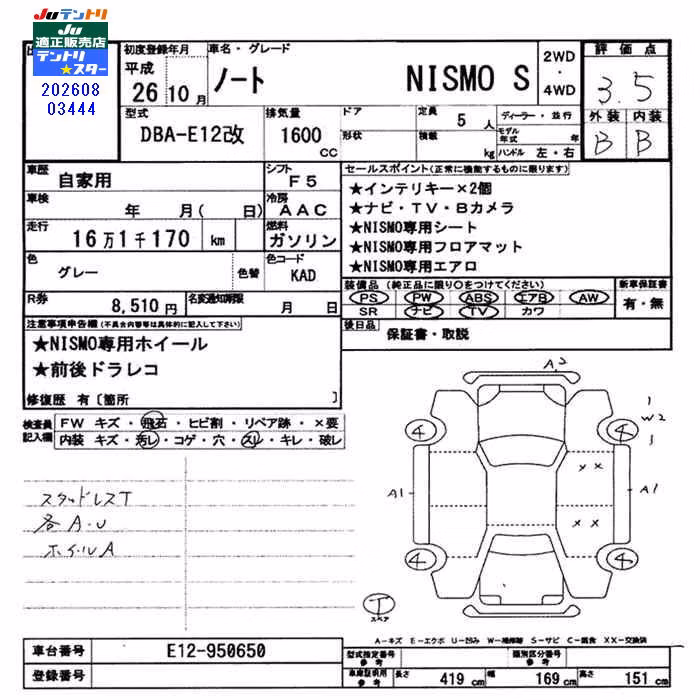 Juテントリ
Ju
適正販売店
テントリ
★スター
202608
03444
初度登録年月
平成
26 10 月
車名・グレード
ノート NISMO S
2WD
・
4WD
評価点
3.5
外装 内装
B B
型式
DBA-E12改
排気量
1600
CC
ドア
形状
定員
5 人
積載
kg
ディーラー・並行
モデル年式 年
ハンドル 左・右
車歴
自家用
シフト
F5
車検
年 月( 日)
冷房
AAC
走行
16万1千170 km
燃料
ガソリン
色
グレー
色替
色コード
KAD
R券
8,510 円
名変通知期限
月 日
セールスポイント(正常に機能するものに限ります)
★インテリキー×2個
★ナビ・TV・Bカメラ
★NISMO専用シート
★NISMO専用フロアマット
★NISMO専用エアロ
装備品(純正品に限り○をつけてください)
PS PW ABS エアB AW
SR ナビ TV カワ
新車保証書
有・無
後日品
保証書・取説
注意事項申告欄(不具合内容等は具体的に記入して下さい)
★NISMO専用ホイール
★前後ドラレコ
修復歴 有〔箇所 〕
検査員
記入欄
FW キズ・飛石・ヒビ割・リペア跡・×要
内装 キズ・汚レ・コゲ・穴・スレ・キレ・破レ
スタッドレスT
各A・U
ホイルA
A2
1
W2
1
4
4
A1
××
A1
××
4
4
T
スペア
A-キズ E-エクボ U-凹み W-補修跡 S-サビ C-腐食 XX-交換済
車台番号
E12-950650
登録番号
型式指定番号
参考
類別区分番号
参考
車庫証明用
参考
長さ 419 cm
幅 169 cm
高さ 151 cm